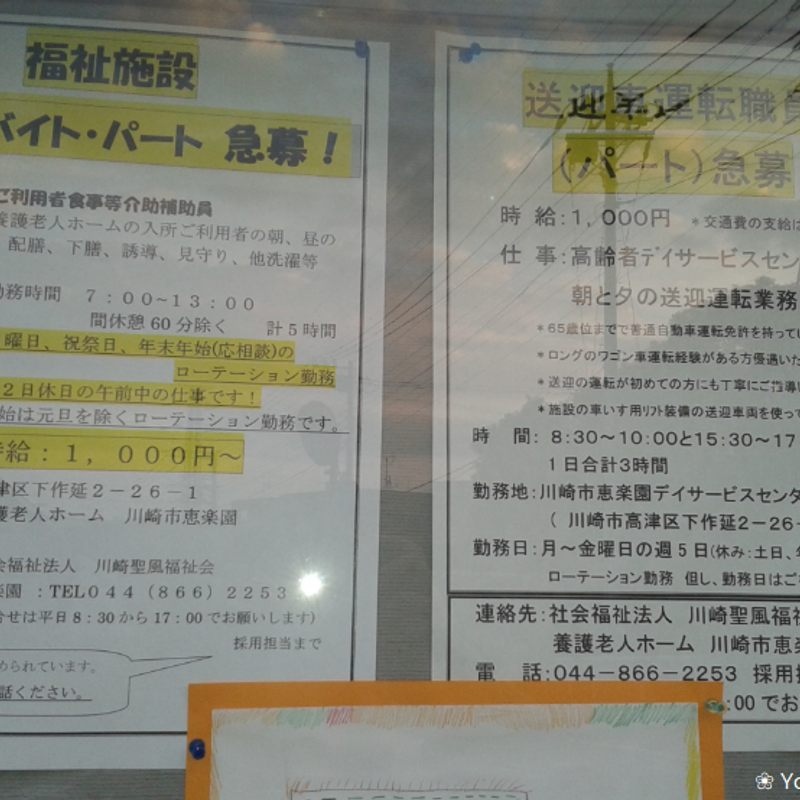 福祉施設
バイト・パート 急募！
ご利用者食事等介助補助員
養護老人ホームの入所ご利用者の朝、昼の
配膳、下膳、誘導、見守り、他洗濯等
勤務時間 ７：００～１３：００
間休憩60分除く 計５時間
曜日、祝祭日、年末年始(応相談)の
ローテーション勤務
２日休日の午前中の仕事です！
始は元旦を除くローテーション勤務です。
時給：１，０００円～
津区下作延２－２６－１
護老人ホーム 川崎市恵楽園
会福祉法人 川崎聖風福祉会
楽園 ：TEL０４４（８６６）２２５３
合せは平日8：30から17：00でお願いします)
採用担当まで
められています。
話ください。
送迎車運転職員
（パート）急募
時 給：１，０００円 ＊交通費の支給は
仕 事：高齢者デイサービスセン
朝と夕の送迎運転業務
＊65歳位までで普通自動車運転免許を持ってい
＊ロングのワゴン車運転経験がある方優遇いた
＊送迎の運転が初めての方にも丁寧にご指導
＊施設の車いす用リフト装備の送迎車両を使って
時 間：８:30～10:00と15:30～17
１日合計３時間
勤務地：川崎市恵楽園デイサービスセンタ
（ 川崎市高津区下作延２－２６－
勤務日：月～金曜日の週５日(休み：土日、年
ローテーション勤務 但し、勤務日はご
連絡先：社会福祉法人 川崎聖風福祉
養護老人ホーム 川崎市恵楽
電 話：044－866－2253 採用担
:00でお
❀ Yo